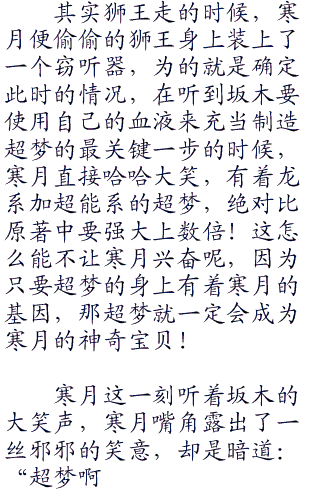 其实狮王走的时候，寒
月便偷偷的狮王身上装上了
一个窃听器，为的就是确定
此时的情况，在听到坂木要
使用自己的血液来充当制造
超梦的最关键一步的时候，
寒月直接哈哈大笑，有着龙
系加超能系的超梦，绝对比
原著中要强大上数倍！这怎
么能不让寒月兴奋呢，因为
只要超梦的身上有着寒月的
基因，那超梦就一定会成为
寒月的神奇宝贝！
寒月这一刻听着坂木的
大笑声，寒月嘴角露出了一
丝邪邪的笑意，却是暗道：
“超梦啊